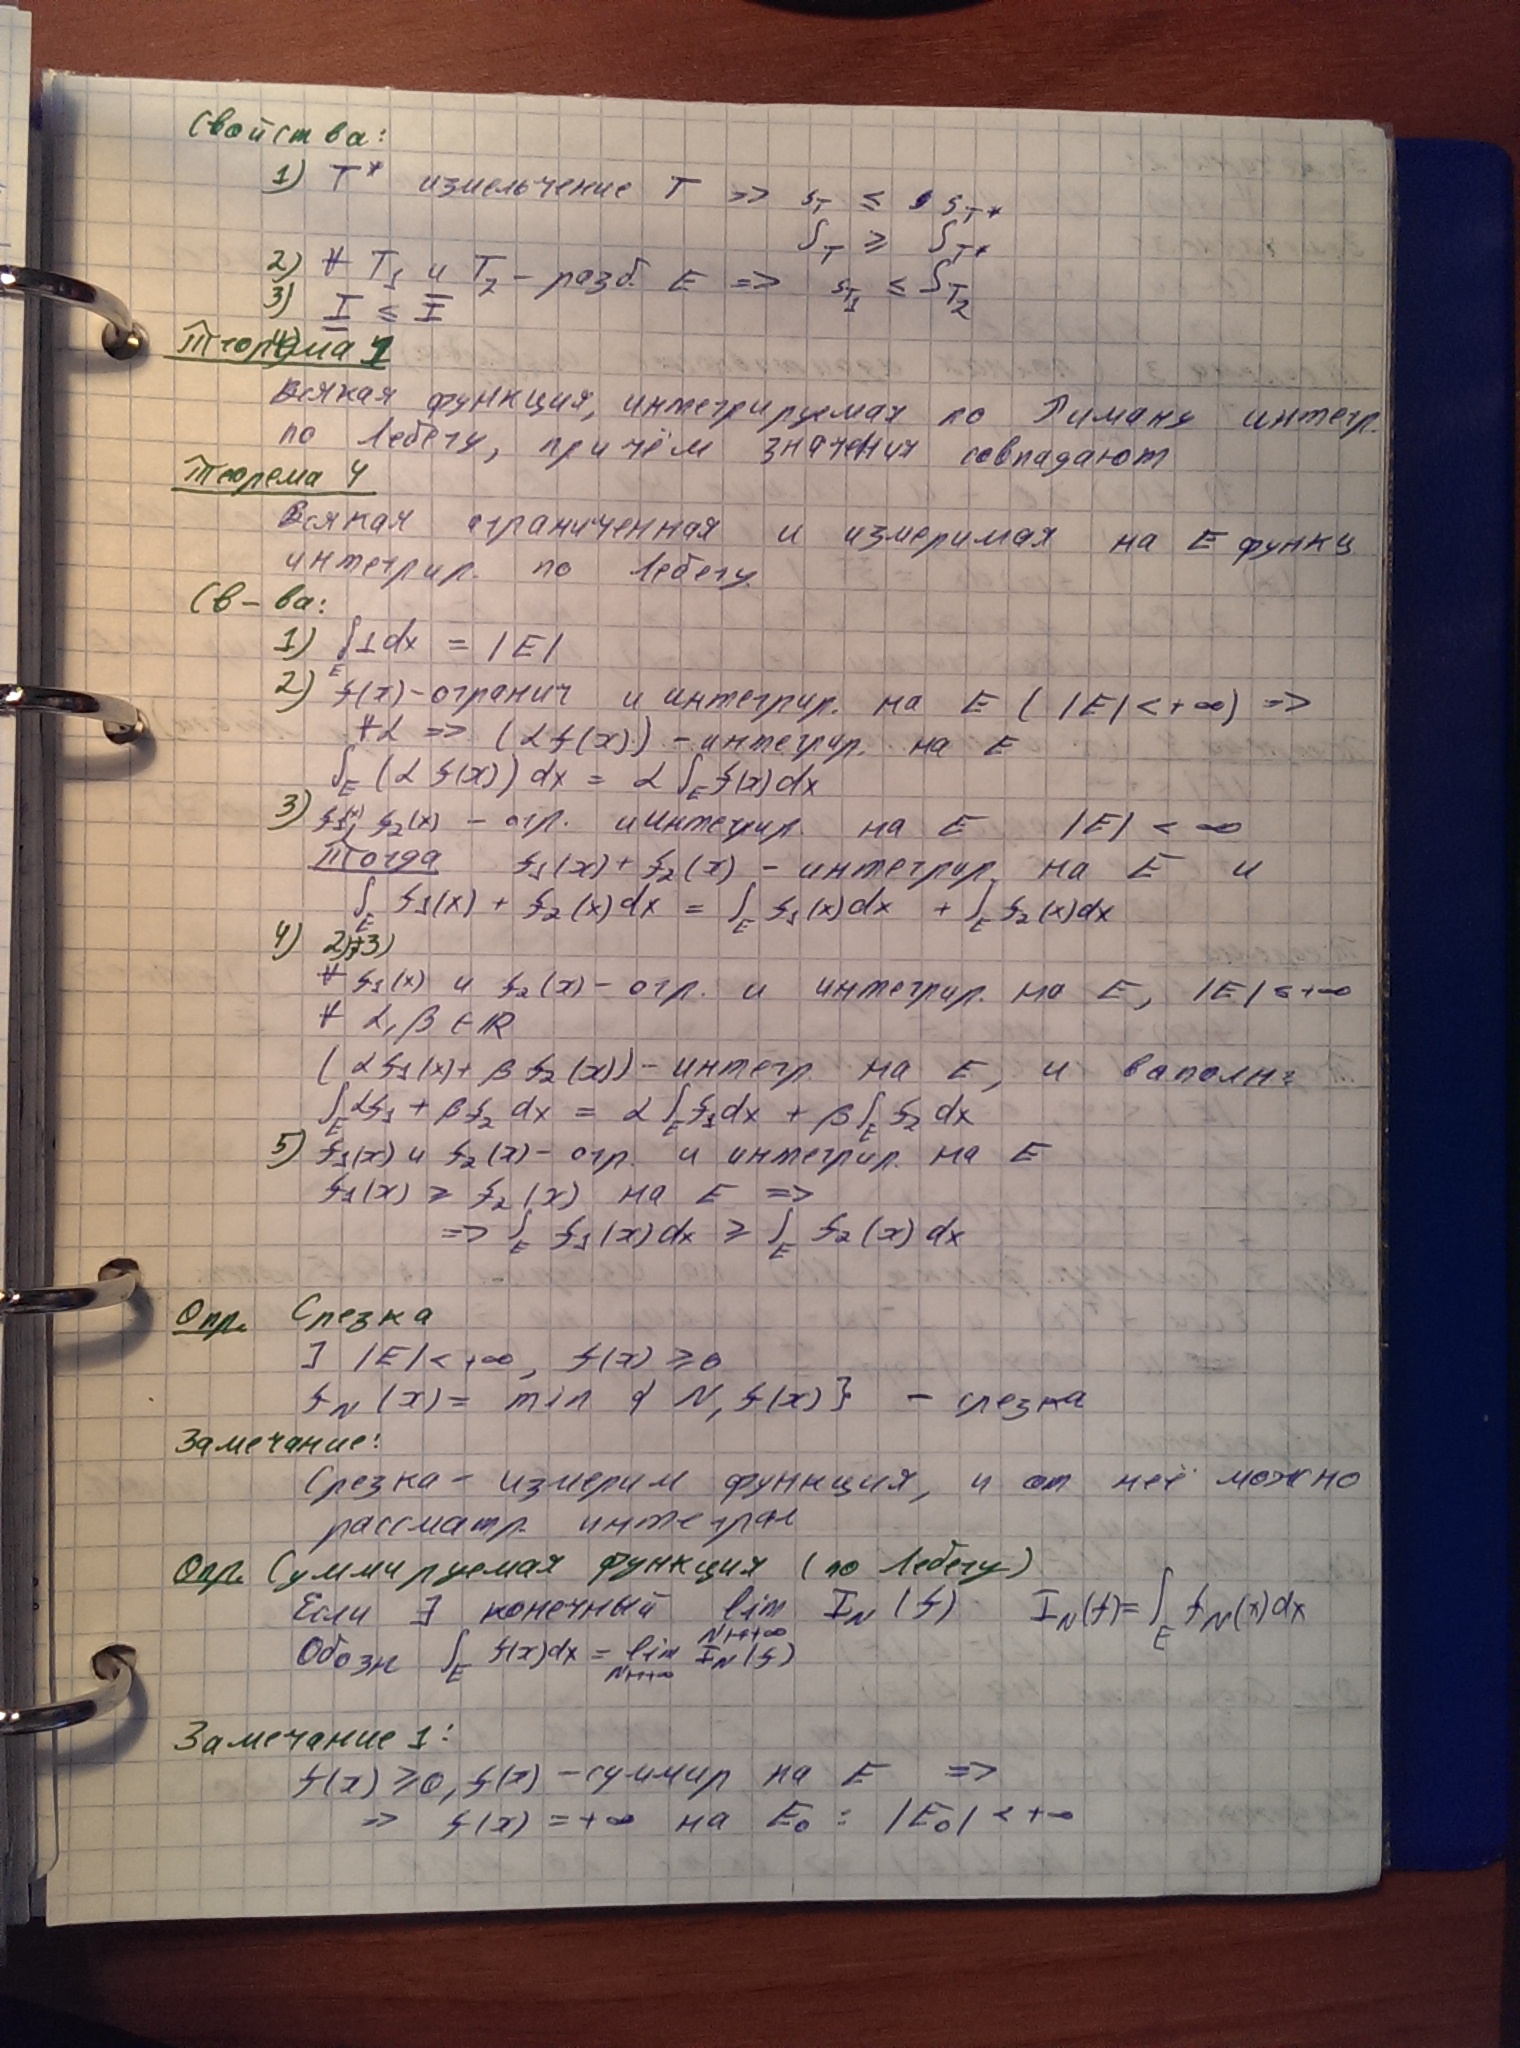 Свойства:
1) T* измельчение T => s_T ≤ s_T*
S_T ≥ S_T*
2) ∀ T₁ и T₂ - разб. E => s_T₁ ≤ S_T₂
3) I ≤ I
Теорема 1
Всякая функция, интегрируемая по Риману интегр.
по Лебегу, причём значения совпадают
Теорема 4
Всякая ограниченная и измеримая на E функц
интегрир. по Лебегу.
Св-ва:
1) ∫_E 1dx = |E|
2) f(x) - огранич и интегрир. на E (|E| < +∞) =>
∀α => (αf(x)) - интегрир. на E
∫_E (αf(x))dx = α∫_E f(x)dx
3) f₁(x), f₂(x) - огр. и интегрир. на E |E| < ∞
Тогда f₁(x) + f₂(x) - интегрир. на E и
∫_E f₁(x) + f₂(x)dx = ∫_E f₁(x)dx + ∫_E f₂(x)dx
4) 2)+3)
∀ f₁(x) и f₂(x) - огр. и интегрир. на E, |E| < +∞
∀ α, β ∈ ℝ
(αf₁(x) + βf₂(x)) - интегр. на E, и
∫_E αf₁ + βf₂ dx = α∫_E f₁dx + β∫_E f₂ dx
5) f₁(x) и f₂(x) - огр. и интегрир. на E
f₁(x) ≥ f₂(x) на E =>
=> ∫_E f₁(x)dx ≥ ∫_E f₂(x)dx
Опр. Срезка
] |E| < +∞, f(x) ≥ 0
f_N(x) = min { N, f(x)} - срезка
Замечание:
Срезка - измерим функция, и от неё можно
рассматр. интеграл
Опр. Суммируемая функция (по Лебегу)
Если ∃ конечный lim_{N→+∞} I_N(f) I_N(f) = ∫_E f_N(x)dx
Обозн ∫_E f(x)dx = lim_{N→+∞} I_N(f)
Замечание 1:
f(x) ≥ 0, f(x) - суммир на E =>
=> f(x) = +∞ на E₀ : |E₀| < +∞